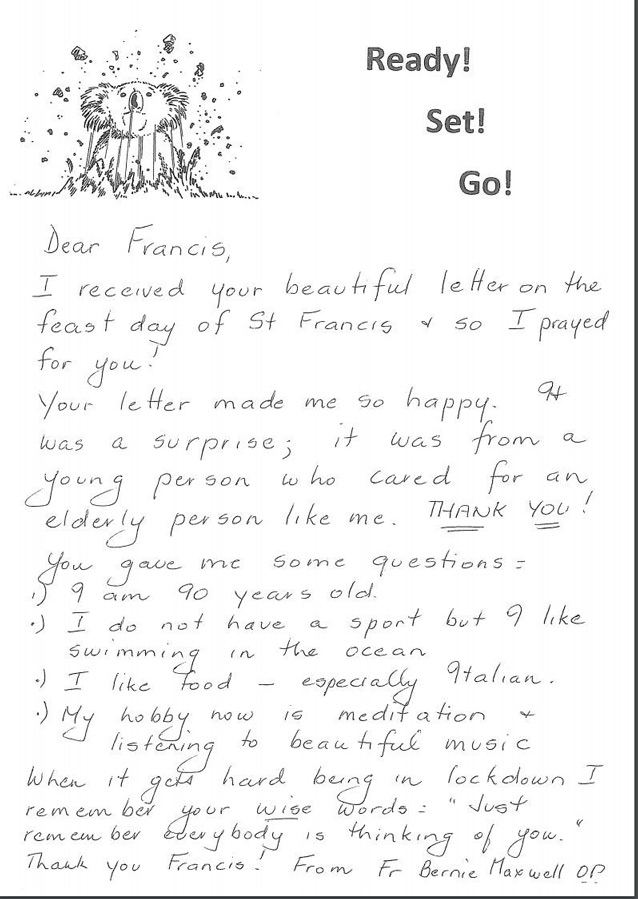 Ready!
Set!
Go!
Dear Francis,
I received your beautiful letter on the
feast day of St Francis & so I prayed
for you!
Your letter made me so happy. It
was a surprise; it was from a
young person who cared for an
elderly person like me. THANK YOU!
You gave me some questions:
.) I am 90 years old.
.) I do not have a sport but I like
swimming in the ocean
.) I like food – especially Italian.
.) My hobby now is meditation &
listening to beautiful music
When it gets hard being in lockdown I
remember your wise words: "Just
remember everybody is thinking of you."
Thank you Francis! From Fr Bernie Maxwell OP